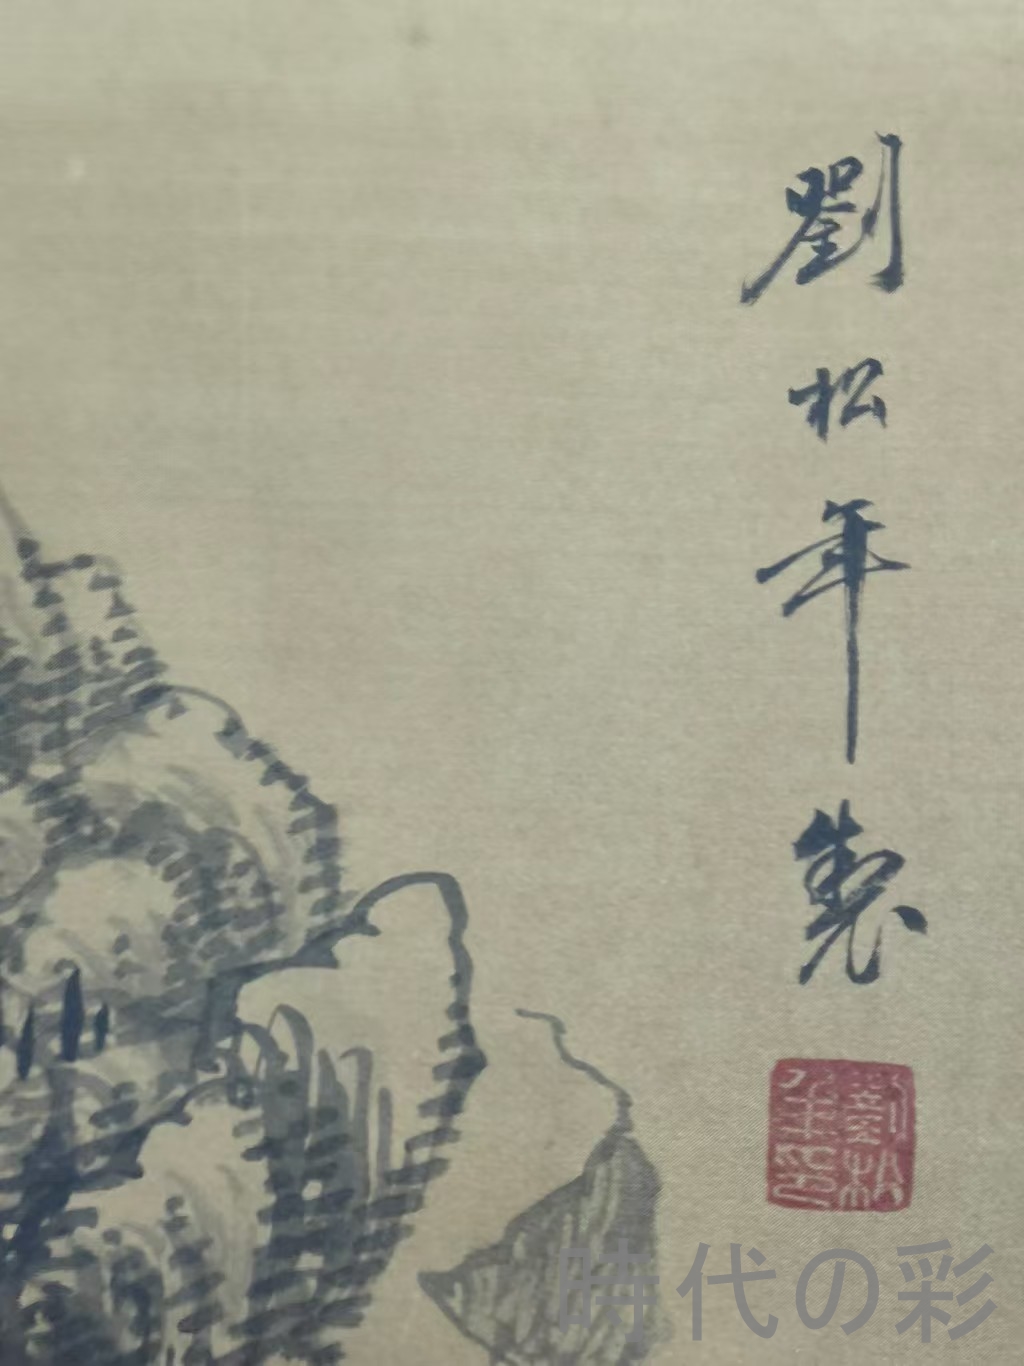 劉松年製
劉松
年印
時代の彩